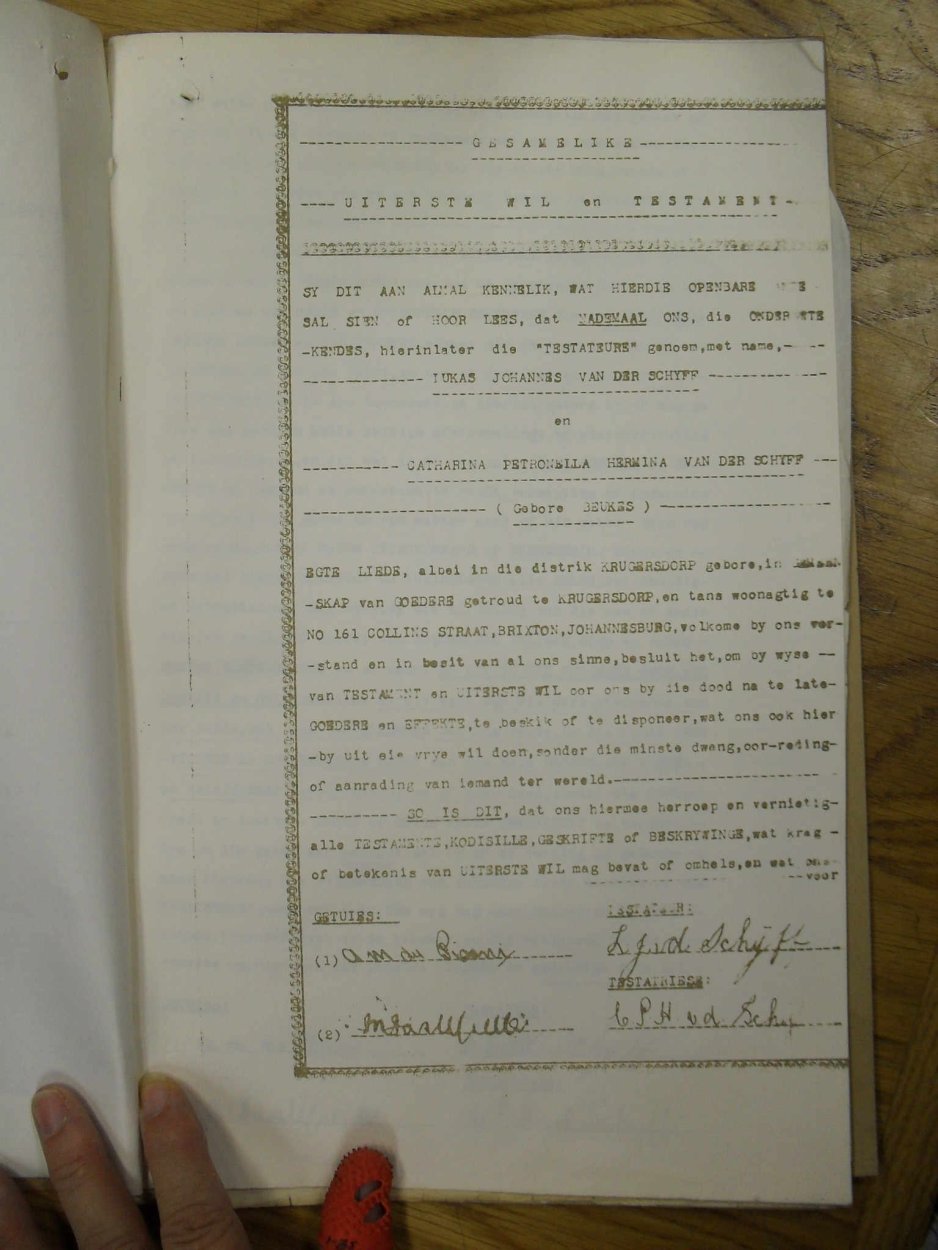 GESAMELIKE
UITERSTE WIL en TESTAMENT
SY DIT AAN ALMAL KENNELIK, WAT HIERDIE OPENBARE
SAL SIEN of HOOR LEES, dat NADEMAAL ONS, die
-KENDES, hierinlater die "TESTATEURE" genoem,met name,-
LUKAS JOHANNES VAN DER SCHYFF
en
CATHARINA PETRONELLA HERMINA VAN DER SCHYFF
( Gebore BEUKES )
EGTE LIEDE, albei in die distrik KRUGERSDORP gebore,in
-SKAP van GOEDERE getroud te KRUGERSDORP,en tans woonagtig te
NO 161 COLLINS STRAAT,BRIXTON,JOHANNESBURG,volkome by ons ver-
-stand en in besit van al ons sinne,besluit het,om by wyse --
van TESTAMENT en UITERSTE WIL oor ons by die dood na te late-
GOEDERE en EFFEKTE,te beskik of te disponeer,wat ons ook hier
-by uit eie vrye wil doen,sonder die minste dwang,oor-reding-
of aanrading van iemand ter wereld.
SO IS DIT, dat ons hiermee herroep en vernietig-
alle TESTAMENTE,KODISILLE,GESKRIFTE of BESKRYWINGE,wat krag -
of betekenis van UITERSTE WIL mag bevat of omhels,en wat ons-
--voor
GETUIES:
TESTATEUR:
(1)
L J v d Schyff
TESTATRIESE:
(2)
C P H v d Schy